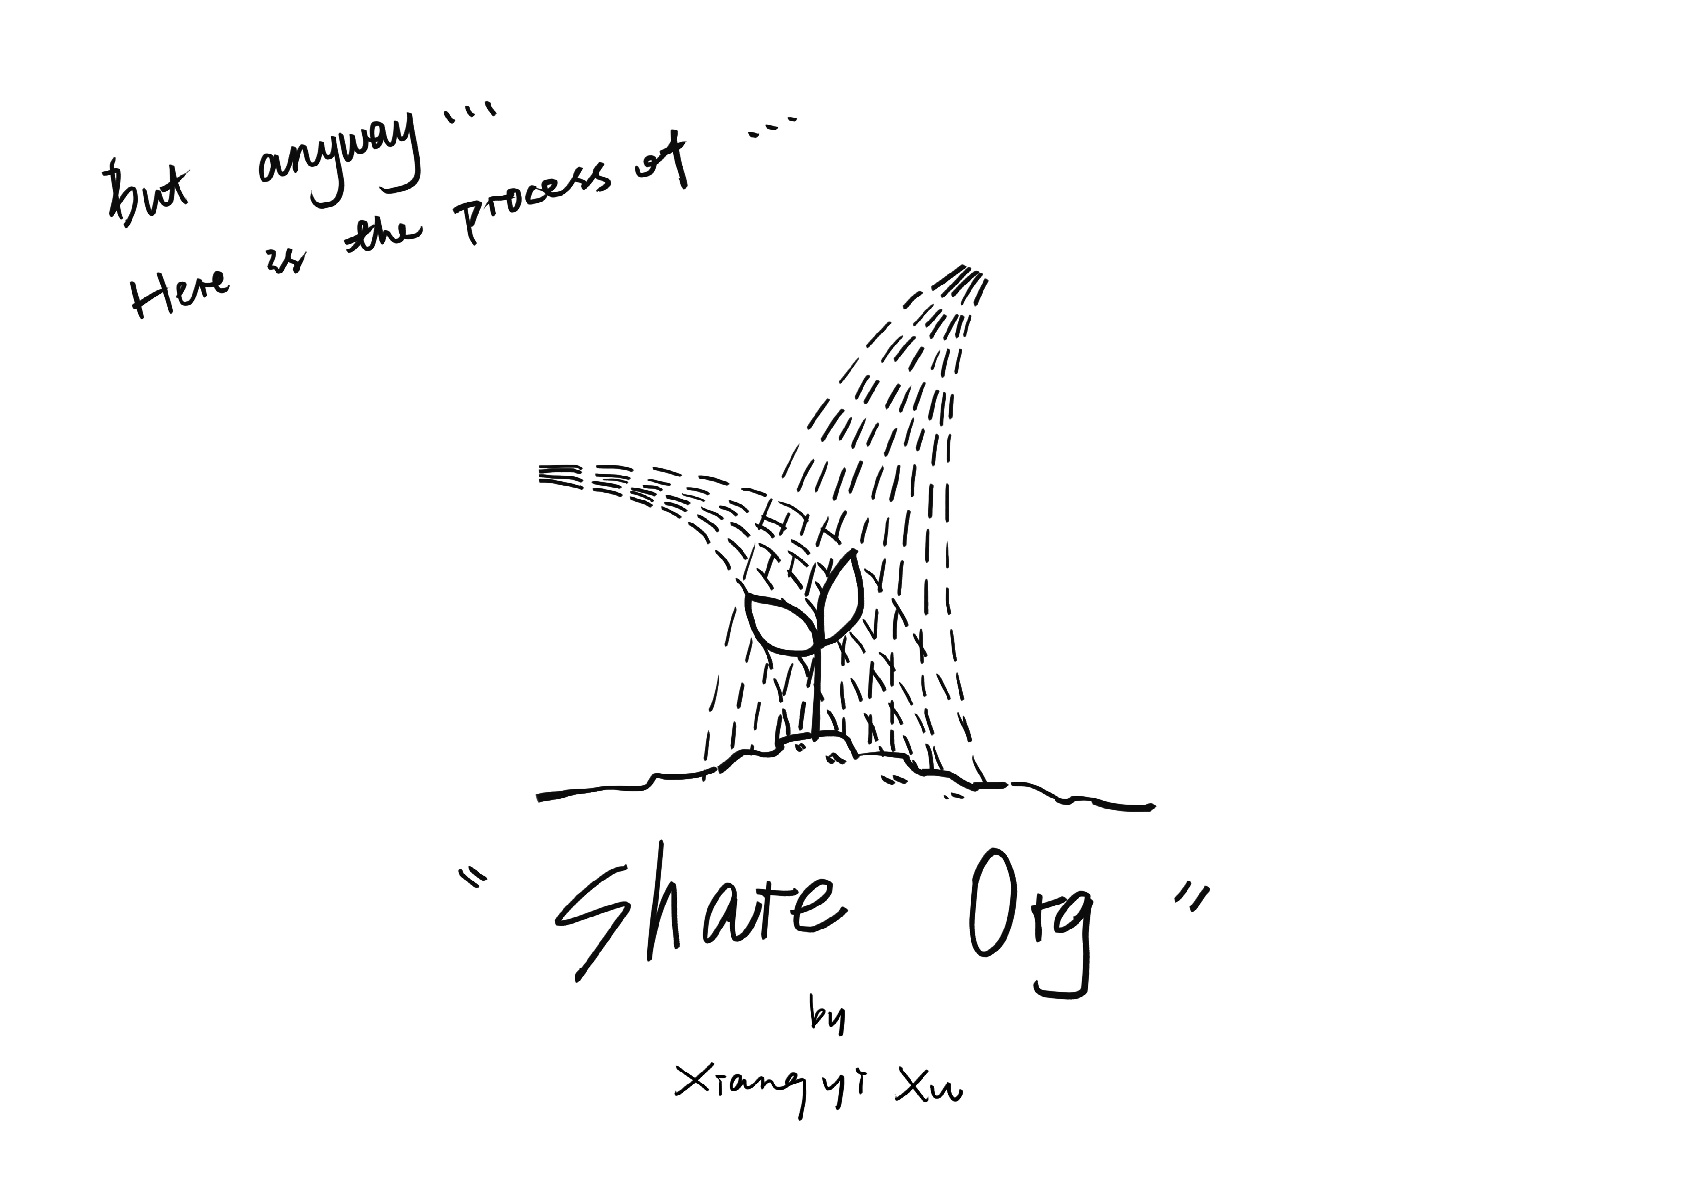 But anyway ...
Here is the process of ...
"Share Org"
by
Xiangyi Xu